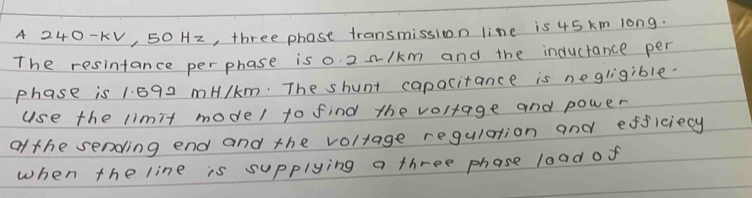 A 240-KV, 50 Hz, three phase transmission line is 45 km long.
The resintance per phase is 0.2 Ω/km and the inductance per
phase is 1.692 mH/km. The shunt capacitance is negligible.
Use the limit model to find the voltage and power
at the sending end and the voltage regulation and efficiecy
when the line is supplying a three phase load of